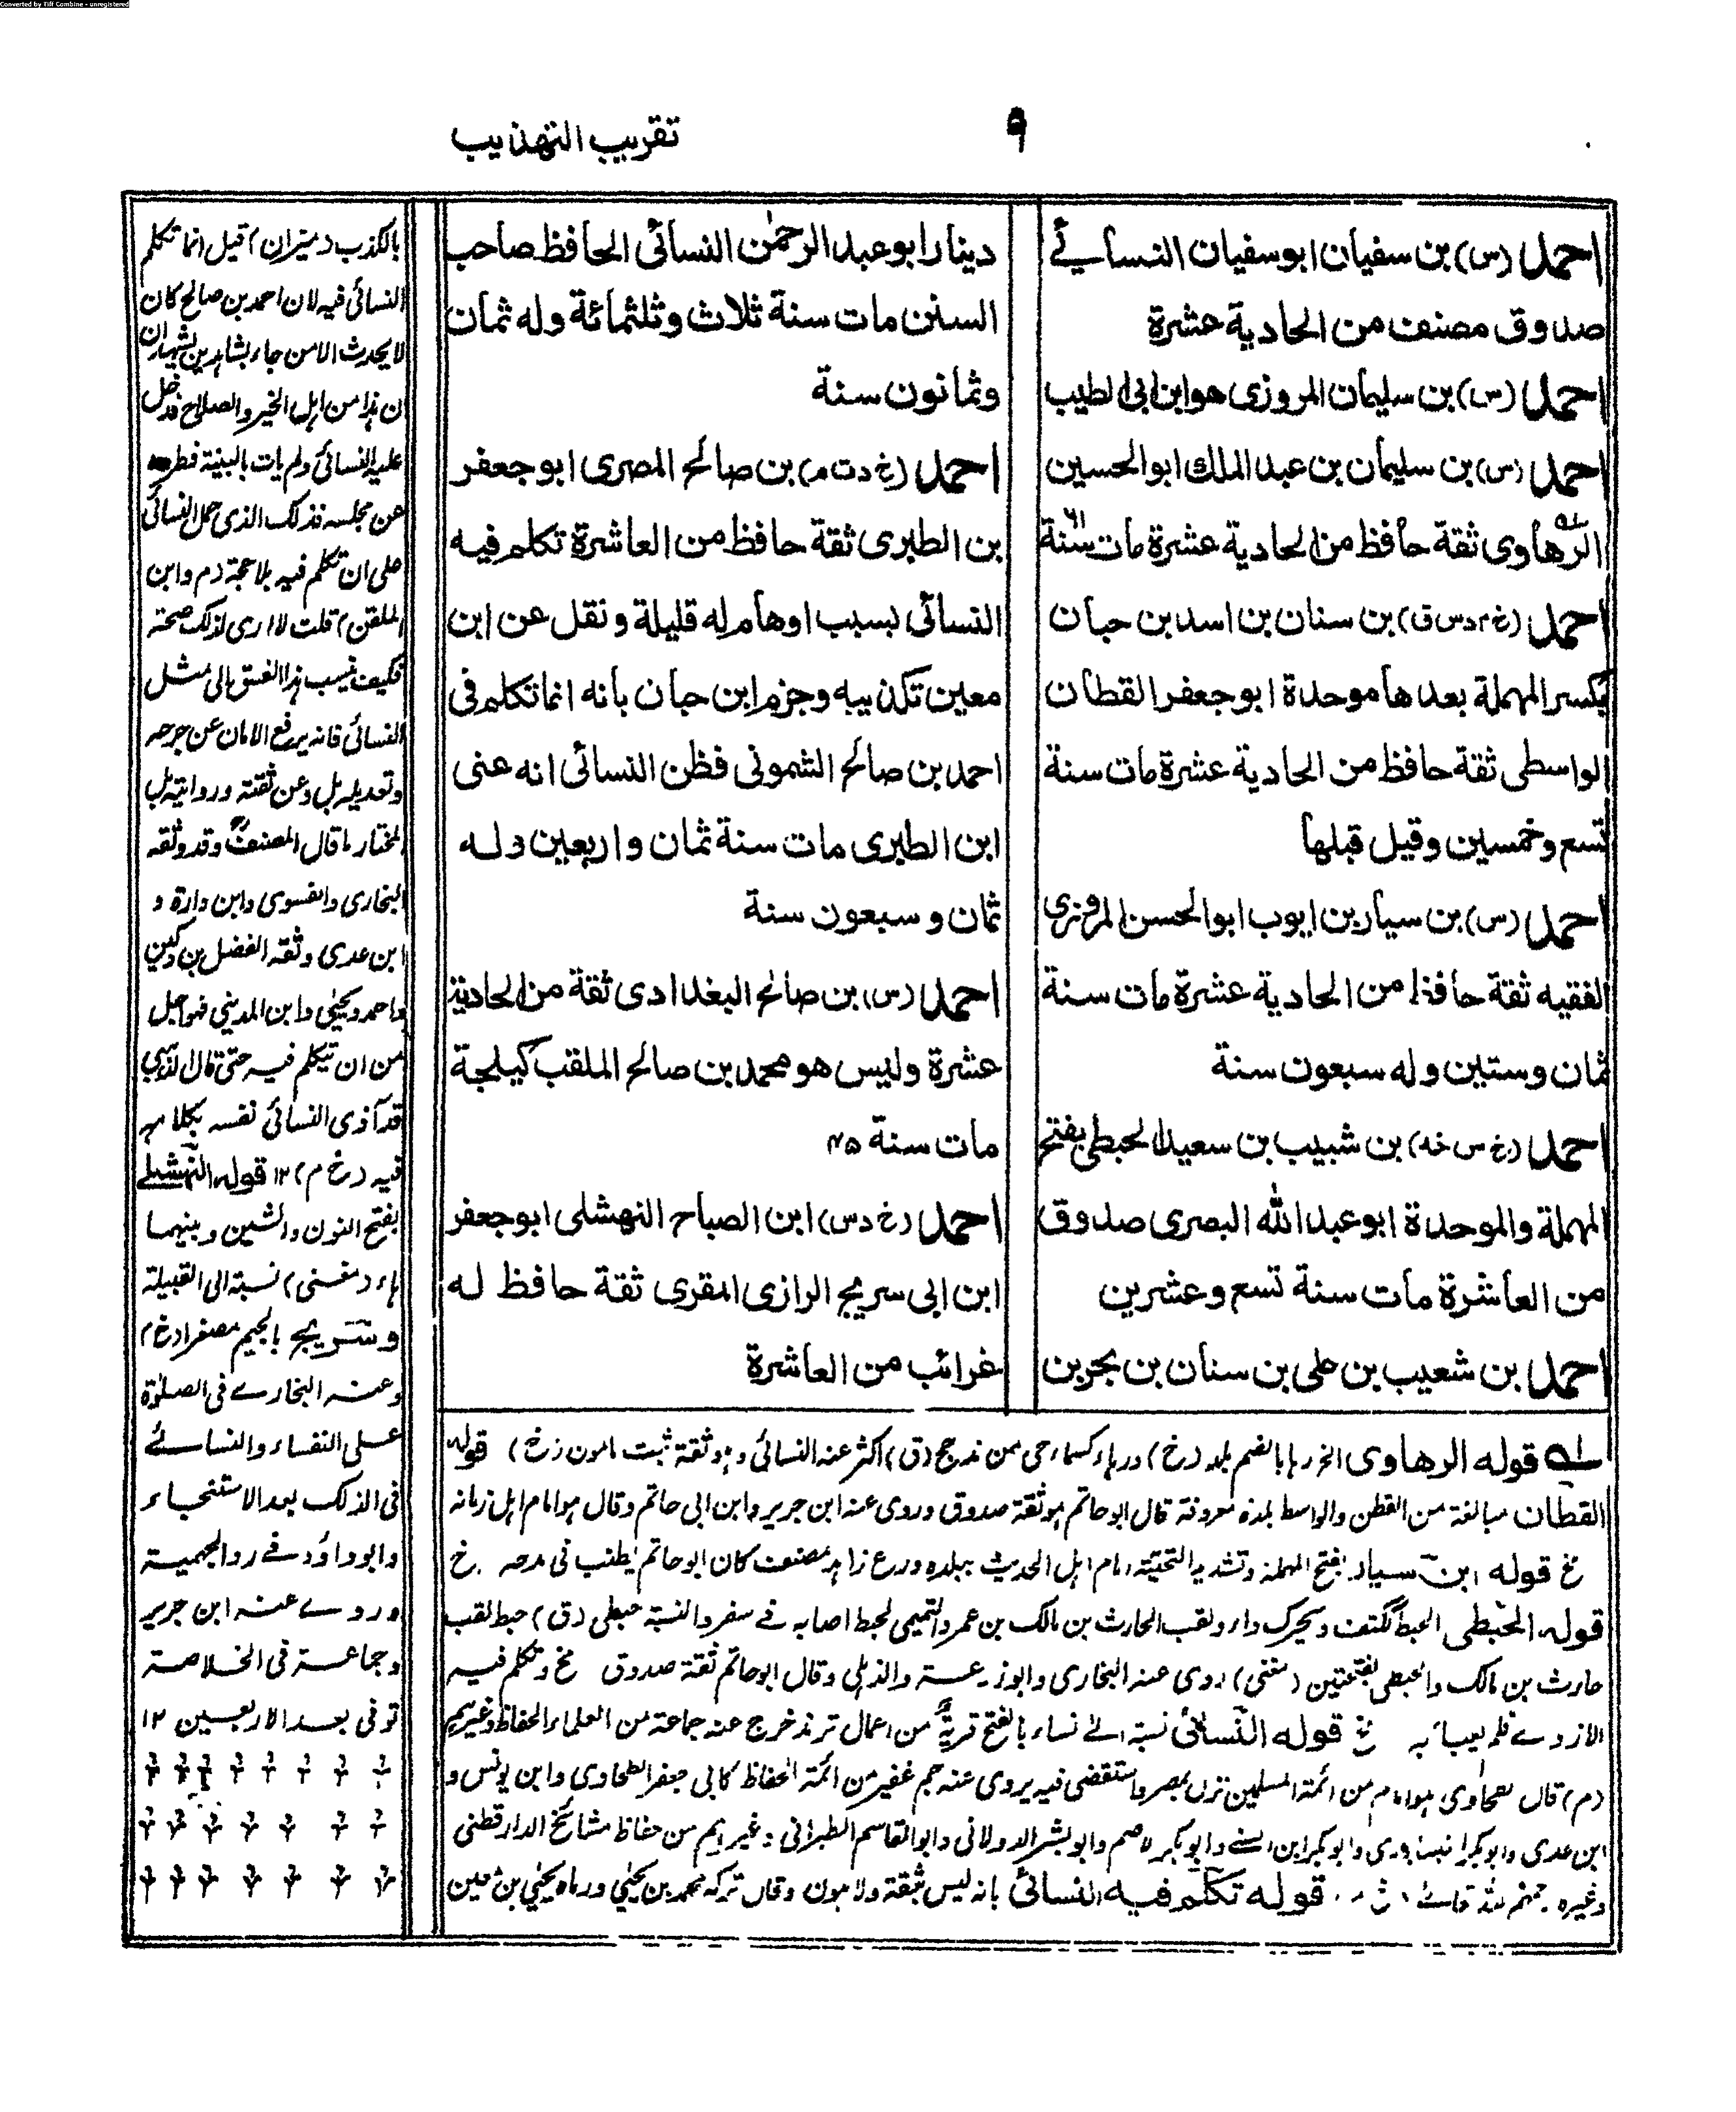 Converted by Tiff Combine - unregistered
٩
تقريب التهذيب
احمد (س) بن سفيان ابوسفيان النسائے
صدوق مصنف من الحادية عشرة
احمد (س) بن سليمان المروزى هوابن ابى الطيب
احمد (س) بن سليمان بن عبد الملك ابوالحسين
الرهاوى ثقة حافظ من الحادية عشرة مات سنة ٦١
احمد (خ م د س ق) بن سنان بن اسد بن حبان
بكسر المهملة بعدها موحدة ابوجعفر القطان
الواسطى ثقة حافظ من الحادية عشرة مات سنة
تسع وخمسين وقيل قبلها
احمد (س) بن سيار بن ايوب ابوالحسن المروزى
الفقيه ثقة حافظ من الحادية عشرة مات سنة
ثمان وستين وله سبعون سنة
احمد (خ س خد) بن شبيب بن سعيد الحبطى بفتح
المهملة والموحدة ابوعبد الله البصرى صدوق
من العاشرة مات سنة تسع وعشرين
احمد بن شعيب بن على بن سنان بن بحر بن
دينار ابوعبد الرحمٰن النسائى الحافظ صاحب
السنن مات سنة ثلاث وثلثمائة وله ثمان
وثمانون سنة
احمد (خ د ت م) بن صالح المصرى ابوجعفر
بن الطبرى ثقة حافظ من العاشرة تكلم فيه
النسائى بسبب اوهام له قليلة ونقل عن ابن
معين تكذيبه وجزم ابن حبان بأنه انما تكلم فى
احمد بن صالح الشمونى فظن النسائى انه عنى
ابن الطبرى مات سنة ثمان واربعين وله
ثمان وسبعون سنة
احمد (س) بن صالح البغدادى ثقة من الحادية
عشرة وليس هو محمد بن صالح الملقب كيلجة
مات سنة ٤٥
احمد (خ د س) ابن الصباح النهشلى ابوجعفر
ابن ابى سريج الرازى المقرى ثقة حافظ له
غرائب من العاشرة
قوله الرهاوى الخ رہا بالضم بلد (خ) ورہاء كسماء حى من مذحج (ق) اكثر عنه النسائى وہو ثقة ثبت مامون (خ) قوله
القطان مبالغة من القطن والواسط بلدة معروفة قال ابوحاتم ہو ثقة صدوق وروى عنه ابن جرير وابن ابى حاتم وقال ہوامام اہل زمانه
خ قوله ابن سيار بفتح المهملة وتشديد التحتية امام اہل الحديث ببلده ورع زاہد مصنف كان ابوحاتم يطنب فى مدحه خ
قوله الحبطى الحبط ككتف ويحرك داء ولقب الحارث بن مالك بن عمرو التميمى لحبط اصابه فے سفر والنسبة حبطى (ق) حبط لقب
حارث بن مالك والحبطى بفتحتين (مغنى) روى عنه البخارى وابوزرعة والذہلى وقال ابوحاتم ثقة صدوق خ وتكلم فيه
الازدے فلم يعبأ به خ قوله النسائى نسبة الے نساء بالفتح قرية من اعمال ترمذ خرج عنه جماعة من العلماء الحفاظ وغيرہم
(م) قال الطحاوى ہوامام من ائمة المسلمين نزل بمصر واستقضى فيه يروى عنه جم غفير من ائمة الحفاظ كابى جعفر الطحاوى وابن يونس و
ابن عدى وابوبكر النيسابورى وابوبكر ابن السنے وابوبكر الاصم وابوبشر الدولابى وابوالقاسم الطبرانى وغيرہم من حفاظ مشائخ الدارقطنى
وغيره قوله تكلم فيه النسائى بانه ليس بثقة ولا مامون وقال تركه محمد بن يحيٰى ورماه يحيٰى بن معين
بالكذب (ميزان) قيل انما تكلم
النسائى فيه لان احمد بن صالح كان
لا يحدث الا من جاء بشاہدين يشہدان
ان ہذا من اہل الخير والصلاح فدخل
عليه النسائى ولم يات بالبينة فطرده
عن مجلسه فذلك الذى حمل النسائى
على ان تكلم فيه بلا حجة (م وابن
الملقن) قلت لا ارى لذلك صحة
فكيف ينسب ہذا الفسق الى مثل
النسائى فانه يرفع الامان عن جرحه
وتعديله بل وعن ثقته وروايته بل
المختار ما قال المصنف وقد وثقه
البخارى والفسوى وابن وارة و
ابن عدى وثقه الفضل بن دكين
واحمد ويحيٰى وابن المدينى فہو اجل
من ان يتكلم فيه حتى قال الذہبى
قد آذى النسائى نفسه بكلامه
فيه (خ م) ١٢ قوله النهشلے
بفتح النون والشين وبينهما
ہاء (مغنى) نسبة الى القبيلة
وسريج بالجيم مصغرا (خ م
وعنه البخارے فى الصلٰوة
على النفساء والنسائے
فى الذلك بعد الاستنجاء
وابوداؤد فے رد الجهمية
وروے عنه ابن جرير
وجماعة فى الخلاصة
توفى بعد الاربعين ١٢